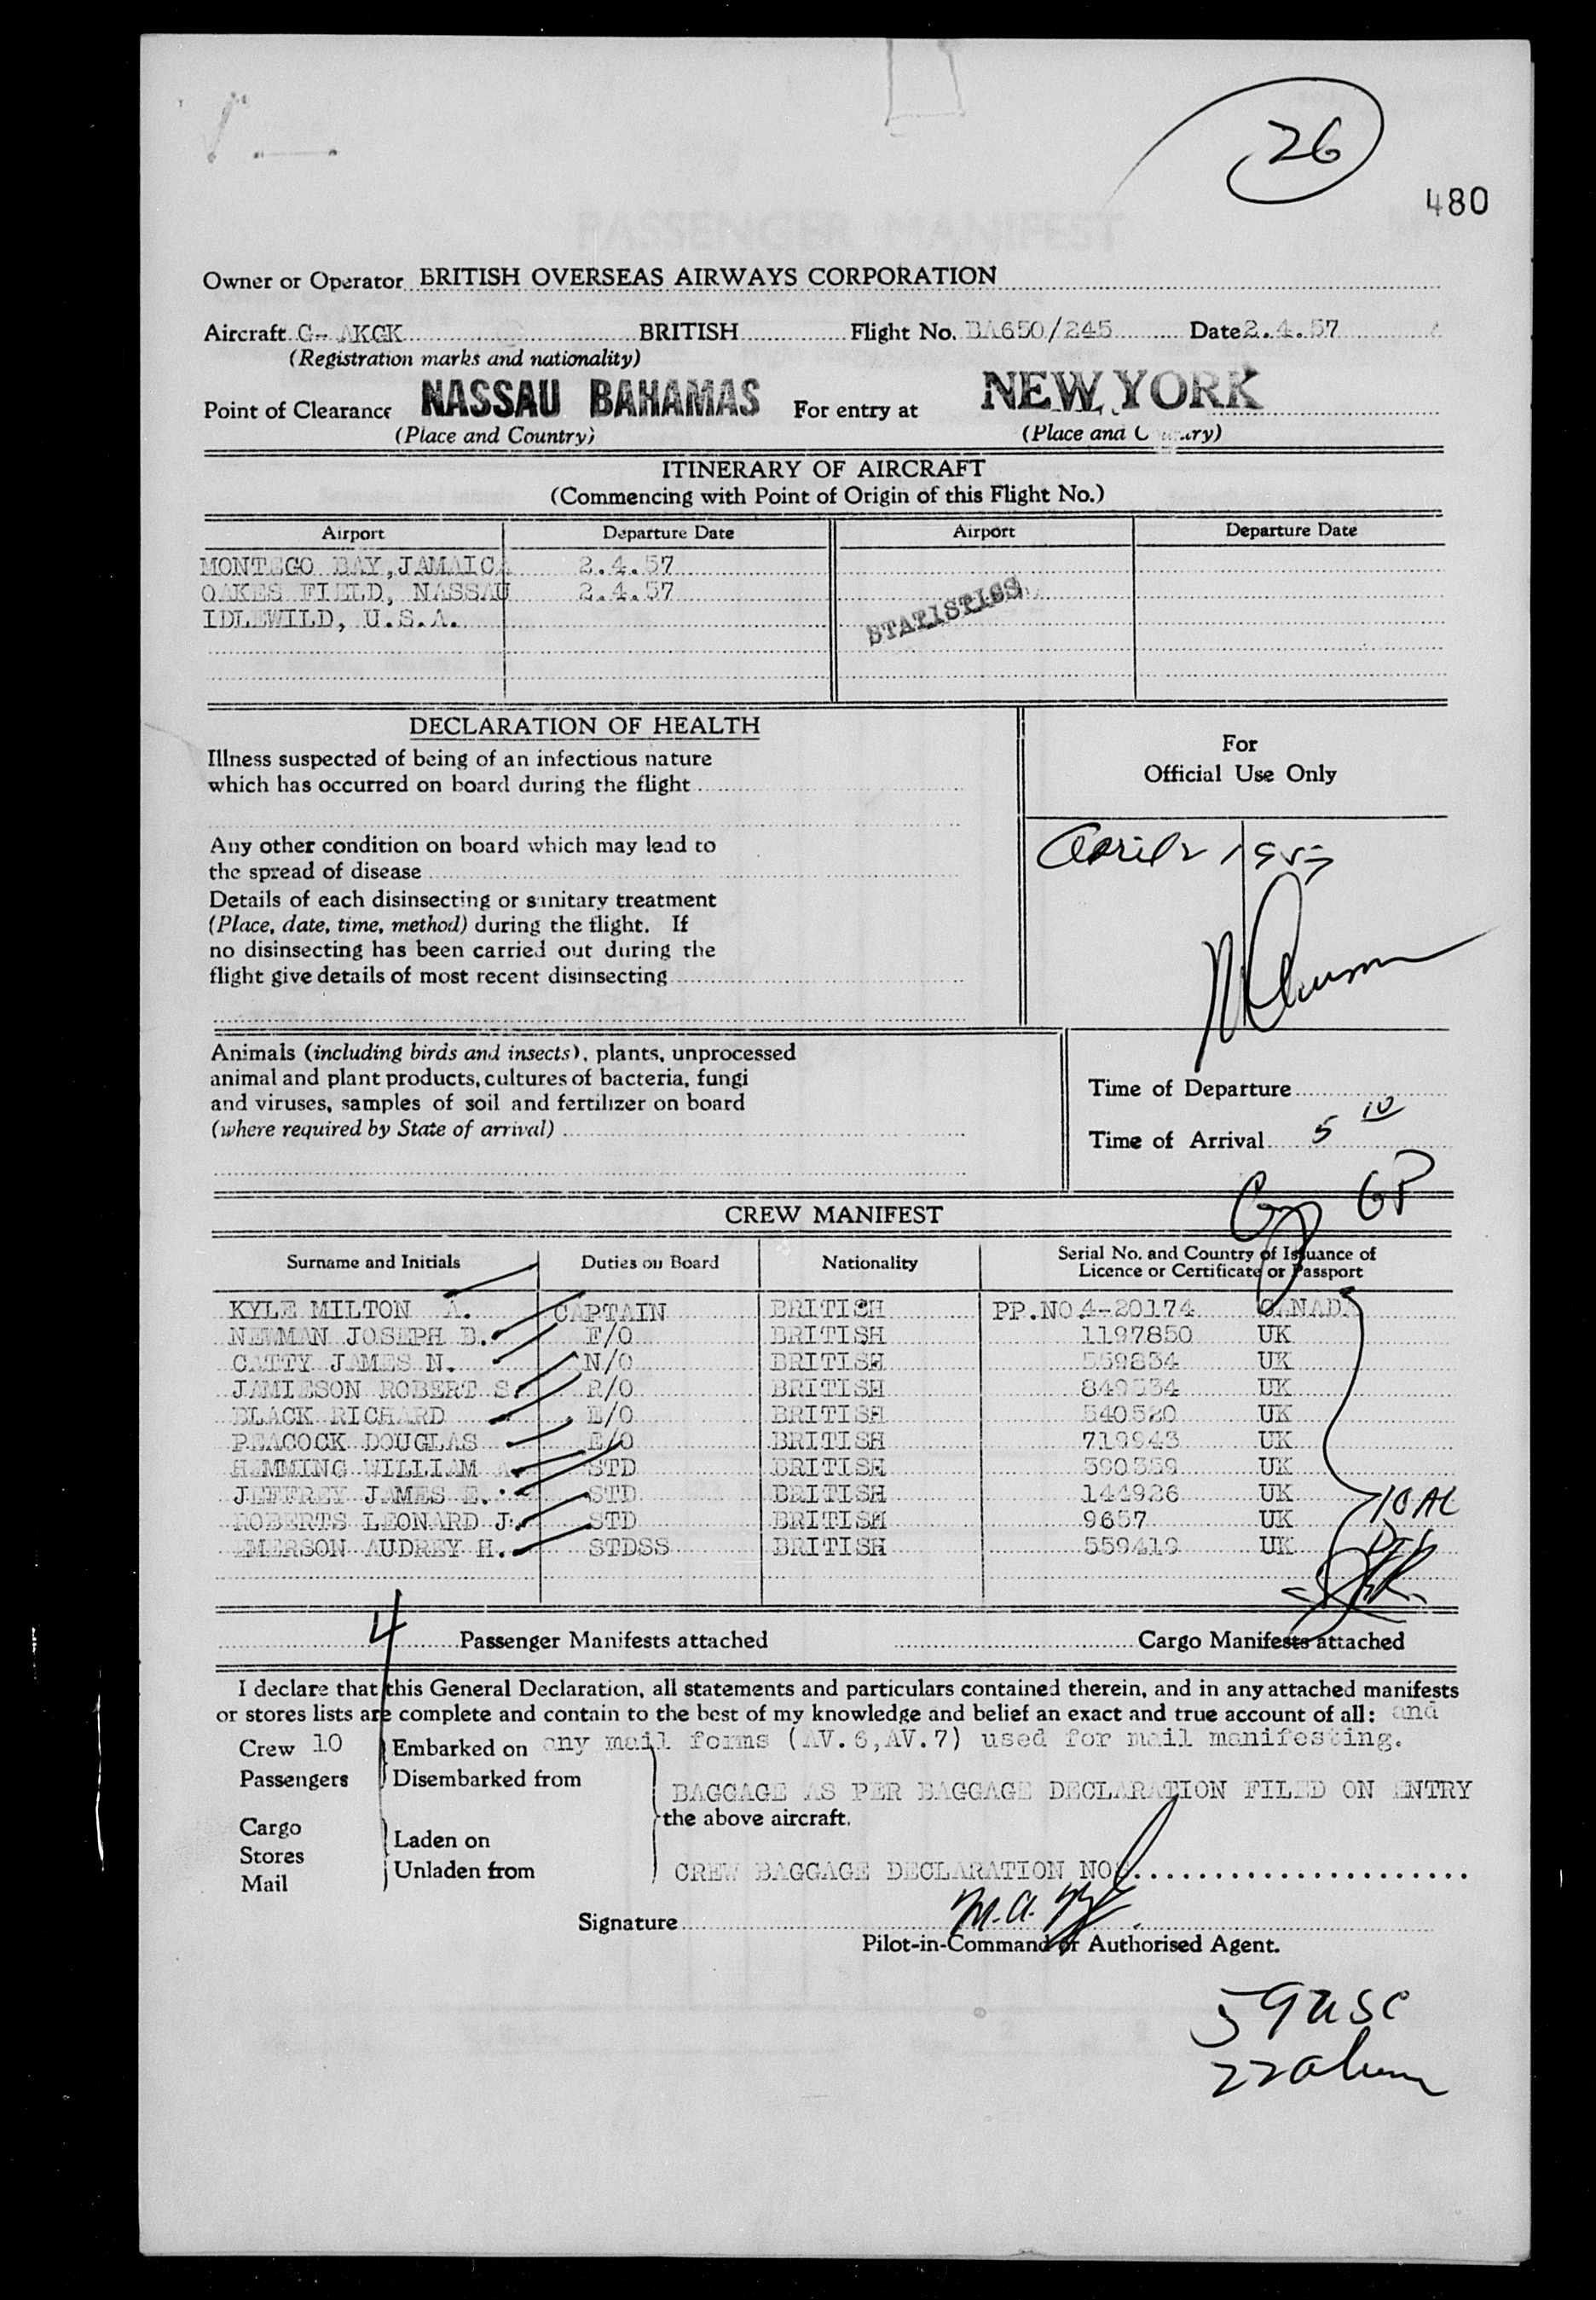 26
480
PASSENGER MANIFEST
Owner or Operator BRITISH OVERSEAS AIRWAYS CORPORATION
Aircraft G- AKGK BRITISH Flight No. BA650/245 Date 2.4.57
(Registration marks and nationality)
Point of Clearance NASSAU BAHAMAS For entry at NEW YORK
(Place and Country) (Place and
ITINERARY OF AIRCRAFT
(Commencing with Point of Origin of this Flight No.)
Airport Departure Date Airport Departure Date
MONTEGO BAY, JAMAICA 2.4.57
OAKES FIELD, NASSAU 2.4.57
IDLEWILD, U.S.A.
STATISTICS
DECLARATION OF HEALTH
Illness suspected of being of an infectious nature
which has occurred on board during the flight
Any other condition on board which may lead to
the spread of disease
Details of each disinsecting or sanitary treatment
(Place, date, time, method) during the flight. If
no disinsecting has been carried out during the
flight give details of most recent disinsecting
For
Official Use Only
April 2 1957
Animals (including birds and insects), plants, unprocessed
animal and plant products, cultures of bacteria, fungi
and viruses, samples of soil and fertilizer on board
(where required by State of arrival)
Time of Departure
Time of Arrival 5 10
GP
CREW MANIFEST
Surname and Initials Duties on Board Nationality Serial No. and Country of Issuance of
Licence or Certificate or Passport
KYLE MILTON A. CAPTAIN BRITISH PP.NO.4-20174 CANADA
NEWMAN JOSEPH B. F/O BRITISH 1197850 UK
CATTY JAMES N. N/O BRITISH 559834 UK
JAMIESON ROBERT S. R/O BRITISH 849534 UK
BLACK RICHARD E/O BRITISH 540520 UK
PEACOCK DOUGLAS E/O BRITISH 719943 UK
HEMMING WILLIAM A. STD BRITISH 590359 UK
JEFFREY JAMES E. STD BRITISH 144926 UK
ROBERTS LEONARD J. STD BRITISH 9657 UK
EMERSON AUDREY H. STDSS BRITISH 559419 UK
10 AC
4 Passenger Manifests attached Cargo Manifests attached
I declare that this General Declaration, all statements and particulars contained therein, and in any attached manifests
or stores lists are complete and contain to the best of my knowledge and belief an exact and true account of all: and
Crew 10 Embarked on any mail forms (AV.6,AV.7) used for mail manifesting.
Passengers Disembarked from
BAGGAGE AS PER BAGGAGE DECLARATION FILED ON ENTRY
the above aircraft.
Cargo
Stores Laden on
Mail Unladen from
CREW BAGGAGE DECLARATION NO
Signature M.A. Kyle
Pilot-in-Command or Authorised Agent.
59 USC
22 alien